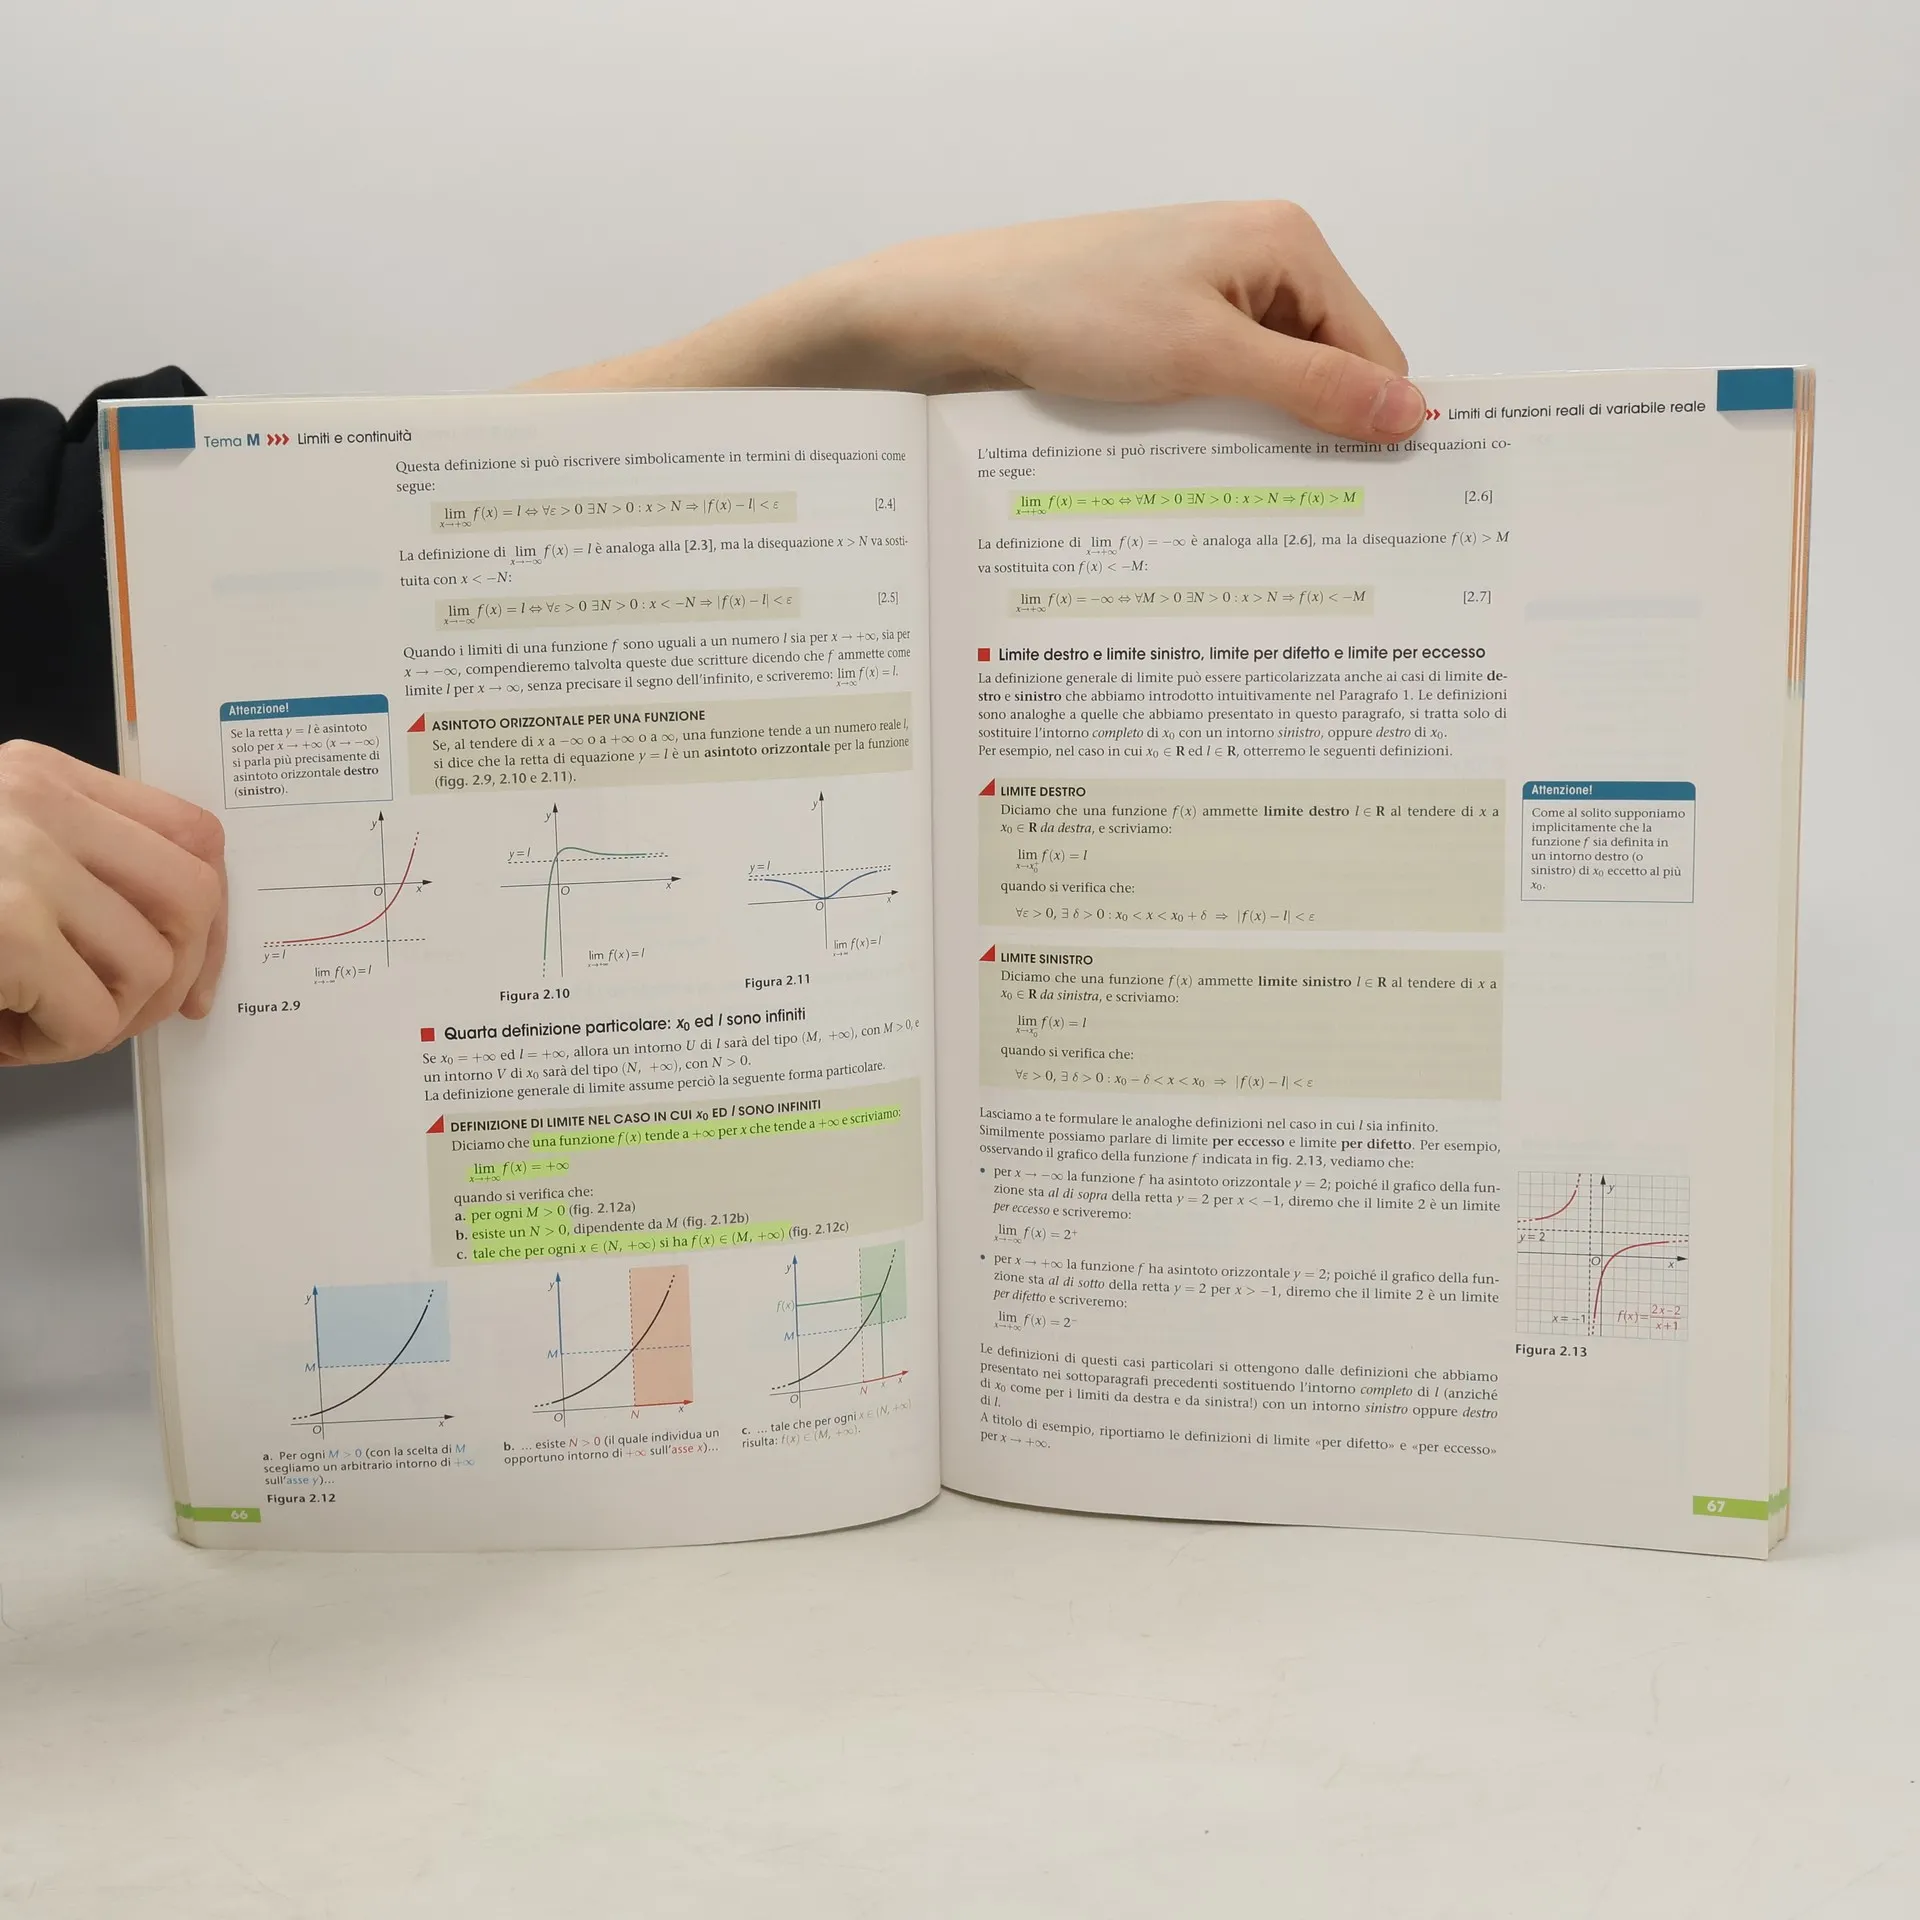 Tema M ››› Limiti e continuità
Questa definizione si può riscrivere simbolicamente in termini di disequazioni come
segue:
lim x→+∞ f(x) = l ⇔ ∀ε > 0 ∃N > 0 : x > N ⇒ |f(x) − l| < ε [2.4]
La definizione di lim x→−∞ f(x) = l è analoga alla [2.3], ma la disequazione x > N va sosti-
tuita con x < −N:
lim x→−∞ f(x) = l ⇔ ∀ε > 0 ∃N > 0 : x < −N ⇒ |f(x) − l| < ε [2.5]
Quando i limiti di una funzione f sono uguali a un numero l sia per x → +∞, sia per
x → −∞, compendieremo talvolta queste due scritture dicendo che f ammette come
limite l per x → ∞, senza precisare il segno dell'infinito, e scriveremo: lim x→∞ f(x) = l.
Attenzione!
Se la retta y = l è asintoto
solo per x → +∞ (x → −∞)
si parla più precisamente di
asintoto orizzontale destro
(sinistro).
ASINTOTO ORIZZONTALE PER UNA FUNZIONE
Se, al tendere di x a −∞ o a +∞ o a ∞, una funzione tende a un numero reale l,
si dice che la retta di equazione y = l è un asintoto orizzontale per la funzione
(figg. 2.9, 2.10 e 2.11).
y
O
x
y=l
lim x→−∞ f(x)=l
Figura 2.9
y
y=l
O
x
lim x→+∞ f(x)=l
Figura 2.10
y
y=l
O
x
lim x→∞ f(x)=l
Figura 2.11
Quarta definizione particolare: x₀ ed l sono infiniti
Se x₀ = +∞ ed l = +∞, allora un intorno U di l sarà del tipo (M, +∞), con M > 0, e
un intorno V di x₀ sarà del tipo (N, +∞), con N > 0.
La definizione generale di limite assume perciò la seguente forma particolare.
DEFINIZIONE DI LIMITE NEL CASO IN CUI x₀ ED l SONO INFINITI
Diciamo che una funzione f(x) tende a +∞ per x che tende a +∞ e scriviamo:
lim x→+∞ f(x) = +∞
quando si verifica che:
a. per ogni M > 0 (fig. 2.12a)
b. esiste un N > 0, dipendente da M (fig. 2.12b)
c. tale che per ogni x ∈ (N, +∞) si ha f(x) ∈ (M, +∞) (fig. 2.12c)
y
M
O
x
a. Per ogni M > 0 (con la scelta di M
scegliamo un arbitrario intorno di +∞
sull'asse y)...
y
M
O
N
x
b. ... esiste N > 0 (il quale individua un
opportuno intorno di +∞ sull'asse x)...
y
f(x)
M
O
N
x
x
c. ... tale che per ogni x ∈ (N, +∞)
risulta: f(x) ∈ (M, +∞).
Figura 2.12
66
›› Limiti di funzioni reali di variabile reale
L'ultima definizione si può riscrivere simbolicamente in termini di disequazioni co-
me segue:
lim x→+∞ f(x) = +∞ ⇔ ∀M > 0 ∃N > 0 : x > N ⇒ f(x) > M [2.6]
La definizione di lim x→+∞ f(x) = −∞ è analoga alla [2.6], ma la disequazione f(x) > M
va sostituita con f(x) < −M:
lim x→+∞ f(x) = −∞ ⇔ ∀M > 0 ∃N > 0 : x > N ⇒ f(x) < −M [2.7]
Limite destro e limite sinistro, limite per difetto e limite per eccesso
La definizione generale di limite può essere particolarizzata anche ai casi di limite de-
stro e sinistro che abbiamo introdotto intuitivamente nel Paragrafo 1. Le definizioni
sono analoghe a quelle che abbiamo presentato in questo paragrafo, si tratta solo di
sostituire l'intorno completo di x₀ con un intorno sinistro, oppure destro di x₀.
Per esempio, nel caso in cui x₀ ∈ R ed l ∈ R, otterremo le seguenti definizioni.
LIMITE DESTRO
Diciamo che una funzione f(x) ammette limite destro l ∈ R al tendere di x a
x₀ ∈ R da destra, e scriviamo:
lim x→x₀⁺ f(x) = l
quando si verifica che:
∀ε > 0, ∃ δ > 0 : x₀ < x < x₀ + δ ⇒ |f(x) − l| < ε
Attenzione!
Come al solito supponiamo
implicitamente che la
funzione f sia definita in
un intorno destro (o
sinistro) di x₀ eccetto al più
x₀.
LIMITE SINISTRO
Diciamo che una funzione f(x) ammette limite sinistro l ∈ R al tendere di x a
x₀ ∈ R da sinistra, e scriviamo:
lim x→x₀⁻ f(x) = l
quando si verifica che:
∀ε > 0, ∃ δ > 0 : x₀ − δ < x < x₀ ⇒ |f(x) − l| < ε
Lasciamo a te formulare le analoghe definizioni nel caso in cui l sia infinito.
Similmente possiamo parlare di limite per eccesso e limite per difetto. Per esempio,
osservando il grafico della funzione f indicata in fig. 2.13, vediamo che:
• per x → −∞ la funzione f ha asintoto orizzontale y = 2; poiché il grafico della fun-
zione sta al di sopra della retta y = 2 per x < −1, diremo che il limite 2 è un limite
per eccesso e scriveremo:
lim x→−∞ f(x) = 2⁺
• per x → +∞ la funzione f ha asintoto orizzontale y = 2; poiché il grafico della fun-
zione sta al di sotto della retta y = 2 per x > −1, diremo che il limite 2 è un limite
per difetto e scriveremo:
lim x→+∞ f(x) = 2⁻
y
y=2
O
x
x=−1
f(x)=2x−2/x+1
Figura 2.13
Le definizioni di questi casi particolari si ottengono dalle definizioni che abbiamo
presentato nei sottoparagrafi precedenti sostituendo l'intorno completo di l (anziché
di x₀ come per i limiti da destra e da sinistra!) con un intorno sinistro oppure destro
di l.
A titolo di esempio, riportiamo le definizioni di limite «per difetto» e «per eccesso»
per x → +∞.
67